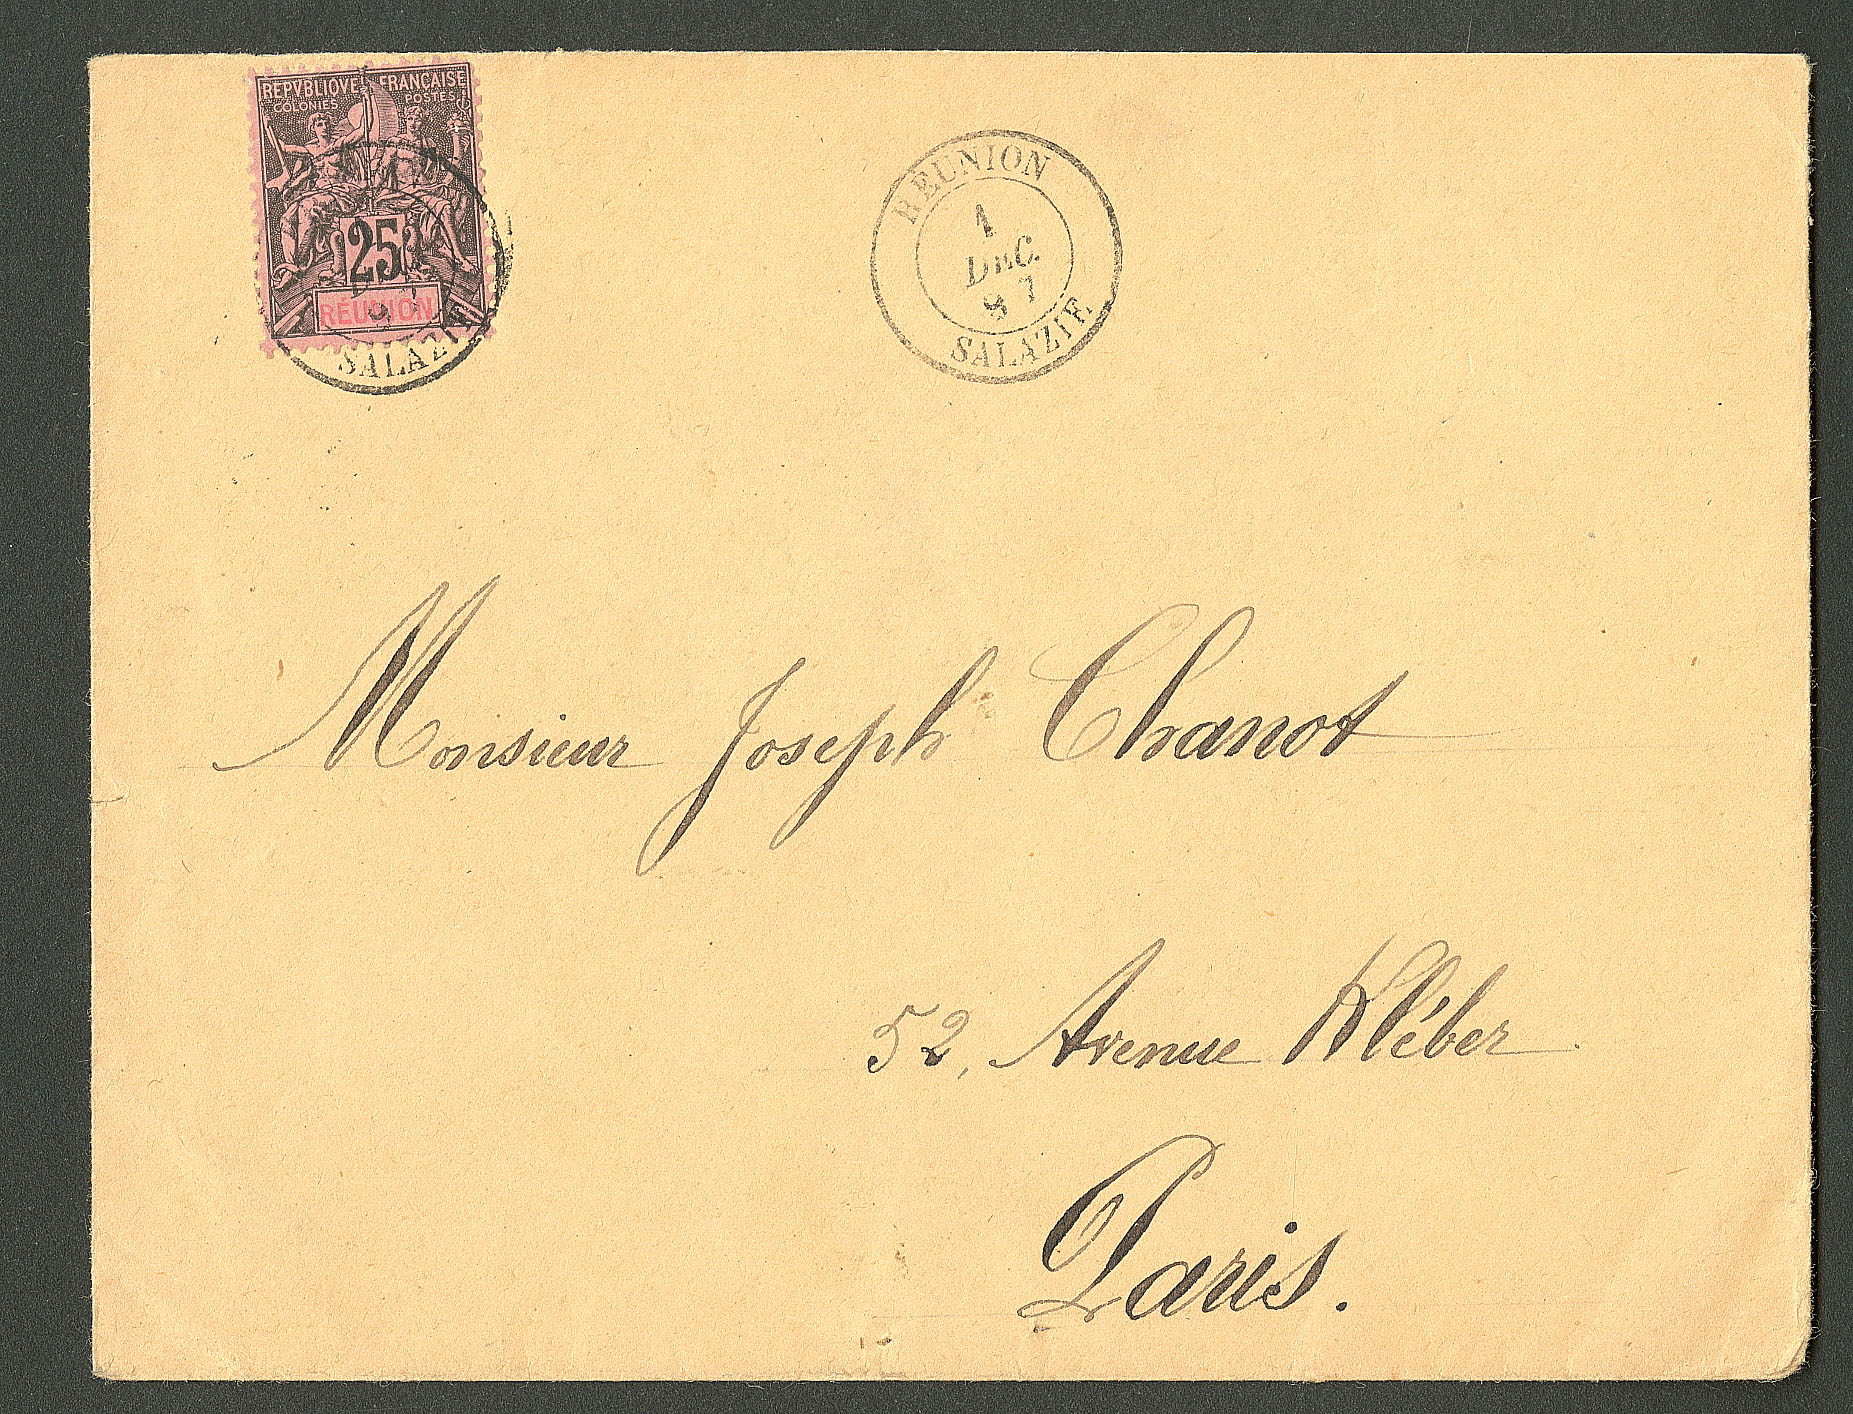 REPVBLIQVE FRANÇAISE
COLONIES POSTES
25
RÉUNION
SALAZIE
RÉUNION
1
DEC.
97
SALAZIE
Monsieur Joseph Chanot
52, Avenue Kléber
Paris.